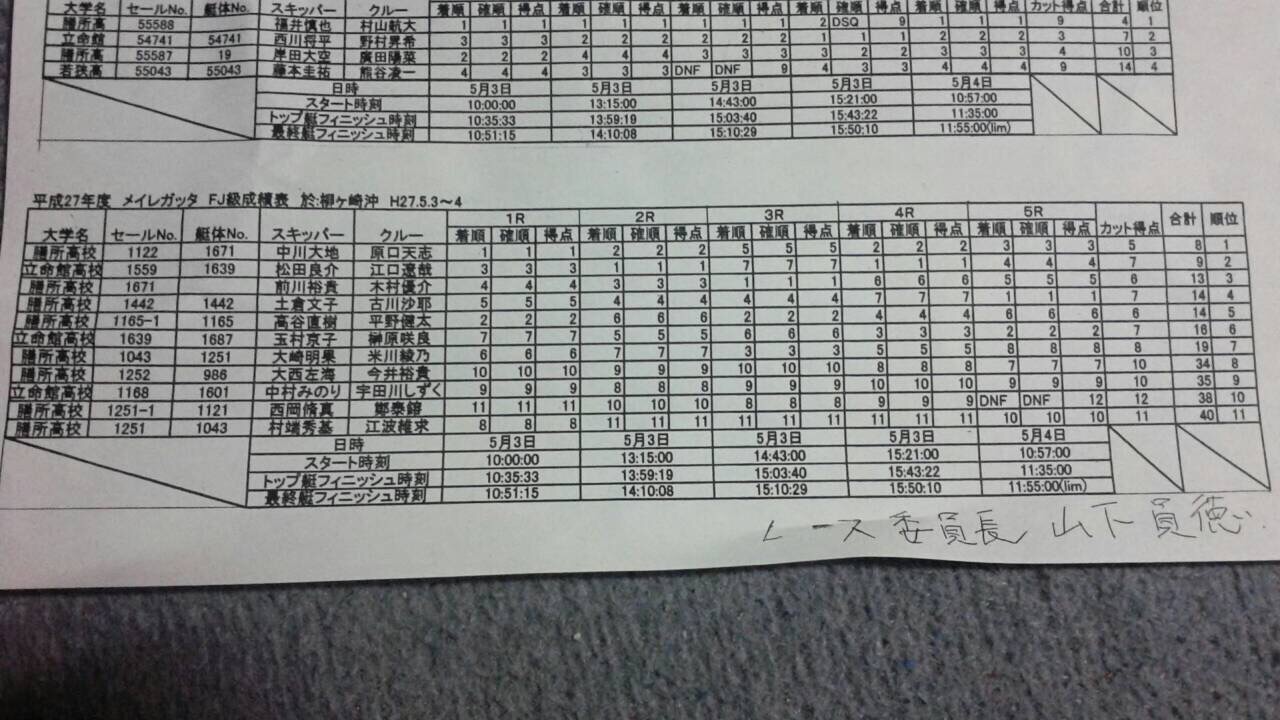 大学名 セールNo. 艇体No. スキッパー クルー 着順 確順 得点 着順 確順 得点 着順 確順 得点 着順 確順 得点 着順 確順 得点 カット得点 合計 順位
膳所高 55588 福井慎也 村山航大 1 1 1 1 1 1 1 1 1 2 DSQ 9 1 1 1 9 4 1
立命館 54741 54741 西川将平 野村昇希 3 3 3 2 2 2 2 2 2 1 1 1 2 2 2 3 7 2
膳所高 55587 19 岸田大空 廣田陽菜 2 2 2 4 4 4 3 3 3 3 2 2 3 3 3 4 10 3
若狭高 55043 55043 藤本圭祐 熊谷凌一 4 4 4 3 3 3 DNF DNF 9 4 3 3 4 4 4 9 14 4
日時 5月3日 5月3日 5月3日 5月3日 5月4日
スタート時刻 10:00:00 13:15:00 14:43:00 15:21:00 10:57:00
トップ艇フィニッシュ時刻 10:35:33 13:59:19 15:03:40 15:43:22 11:35:00
最終艇フィニッシュ時刻 10:51:15 14:10:08 15:10:29 15:50:10 11:55:00(lim)
平成27年度 メイレガッタ FJ級成績表 於:柳ヶ崎沖 H27.5.3～4
1R 2R 3R 4R 5R
大学名 セールNo. 艇体No. スキッパー クルー 着順 確順 得点 着順 確順 得点 着順 確順 得点 着順 確順 得点 着順 確順 得点 カット得点 合計 順位
膳所高校 1122 1671 中川大地 原口天志 1 1 1 2 2 2 5 5 5 2 2 2 3 3 3 5 8 1
立命館高校 1559 1639 松田良介 江口遼哉 3 3 3 1 1 1 7 7 7 1 1 1 4 4 4 7 9 2
膳所高校 1671 前川裕貴 木村優介 4 4 4 3 3 3 1 1 1 6 6 6 5 5 5 6 13 3
膳所高校 1442 1442 土倉文子 古川沙耶 5 5 5 4 4 4 4 4 4 7 7 7 1 1 1 7 14 4
膳所高校 1165-1 1165 高谷直樹 平野健太 2 2 2 6 6 6 2 2 2 4 4 4 6 6 6 6 14 5
立命館高校 1639 1687 玉村京子 榊原咲良 7 7 7 5 5 5 6 6 6 3 3 3 2 2 2 7 16 6
膳所高校 1043 1251 大崎明果 米川綾乃 6 6 6 7 7 7 3 3 3 5 5 5 8 8 8 8 19 7
膳所高校 1252 986 大西左海 今井裕貴 10 10 10 9 9 9 10 10 10 8 8 8 7 7 7 10 34 8
立命館高校 1168 1601 中村みのり 宇田川しずく 9 9 9 8 8 8 9 9 9 10 10 10 9 9 9 10 35 9
膳所高校 1251-1 1121 西岡脩真 鄭泰鎔 11 11 11 10 10 10 8 8 8 9 9 9 DNF DNF 12 12 38 10
膳所高校 1251 1043 村端秀基 江波維求 8 8 8 11 11 11 11 11 11 11 11 11 10 10 10 11 40 11
日時 5月3日 5月3日 5月3日 5月3日 5月4日
スタート時刻 10:00:00 13:15:00 14:43:00 15:21:00 10:57:00
トップ艇フィニッシュ時刻 10:35:33 13:59:19 15:03:40 15:43:22 11:35:00
最終艇フィニッシュ時刻 10:51:15 14:10:08 15:10:29 15:50:10 11:55:00(lim)
レース委員長 山下員徳